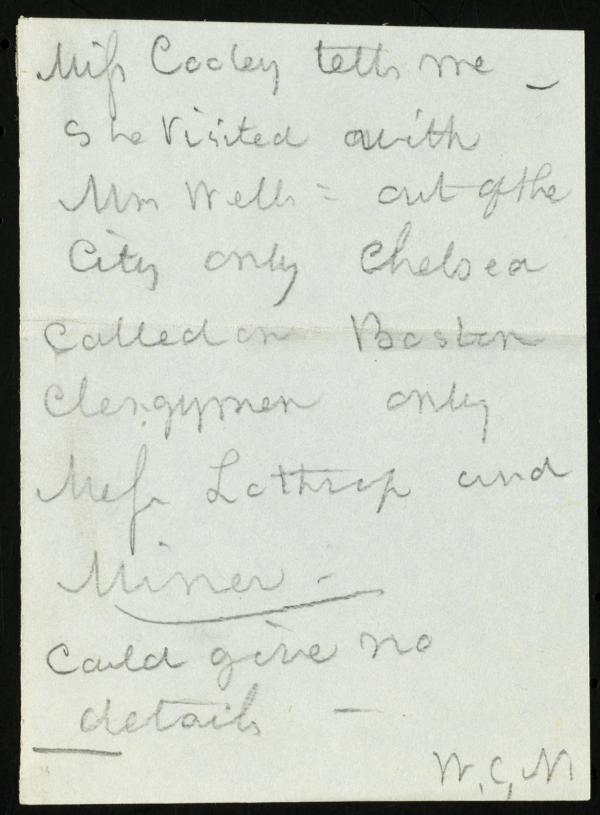 Miss Cooley tells me –
She visited with
Mrs Wells – out of the
City only Chelsea
Called on Boston
Clergymen only
Mess Lothrop and
Miner –
Could give no
details –
W. C. N